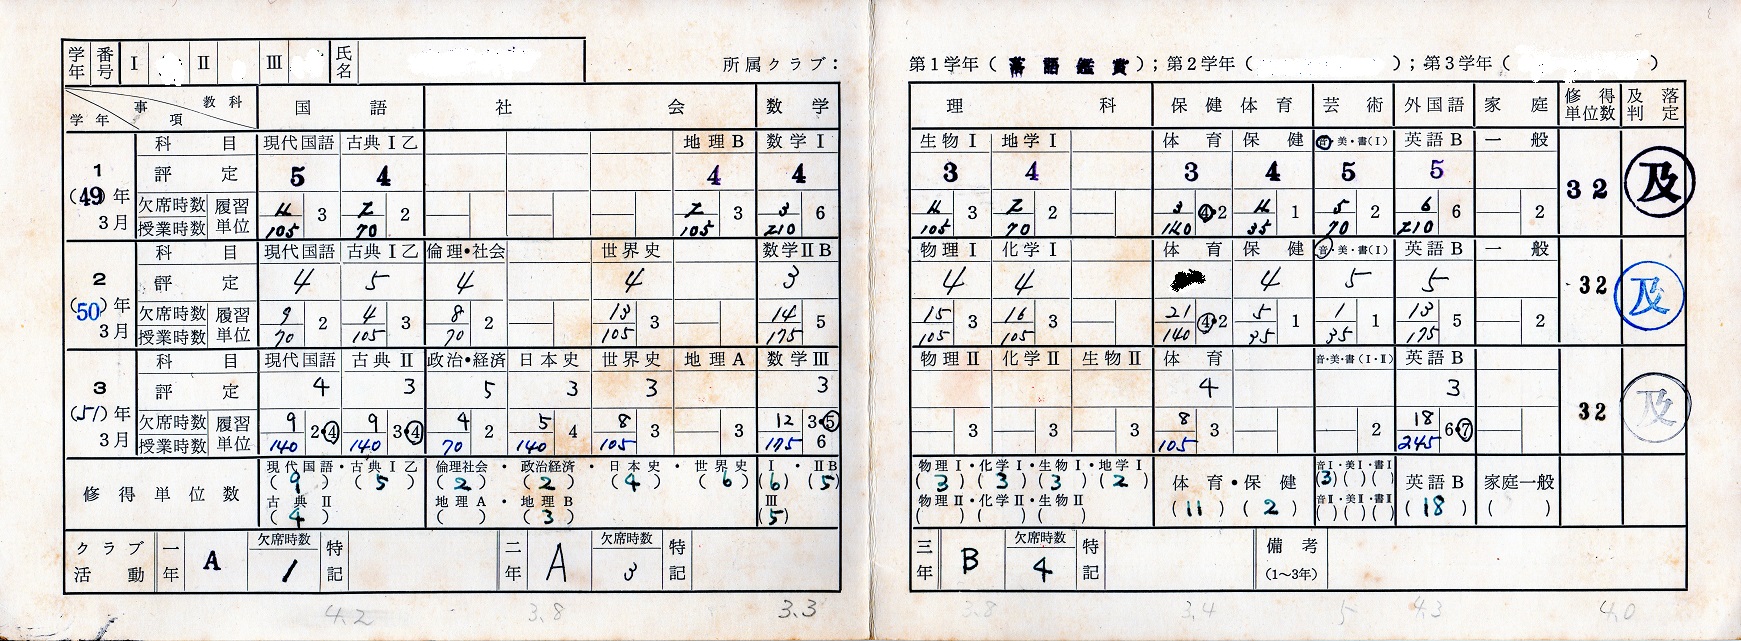 学年 番号 Ⅰ Ⅱ Ⅲ 氏名
所属クラブ： 第1学年（落語鑑賞）；第2学年（ ）；第3学年（ ）
事項 教科 学年 国語 社会 数学 理科 保健体育 芸術 外国語 家庭 修得単位数 及落判定
1 (49)年3月
科目 現代国語 古典Ⅰ乙 地理B 数学Ⅰ 生物Ⅰ 地学Ⅰ 体育 保健 音・美・書(Ⅰ) 英語B 一般
評定 5 4 4 4 3 4 3 4 5 5 32 及
欠席時数 履習 2 2 3 3 2 3 5 6
授業時数 単位 105 3 70 2 105 3 210 6 105 3 70 2 140 ④・2 35 1 70 2 210 6 2
2 (50)年3月
科目 現代国語 古典Ⅰ乙 倫理・社会 世界史 数学ⅡB 物理Ⅰ 化学Ⅰ 体育 保健 音・美・書(Ⅰ) 英語B 一般
評定 4 5 4 4 3 4 4 4 5 5 32 及
欠席時数 履習 9 4 8 13 14 15 16 21 5 1 13
授業時数 単位 70 2 105 3 70 2 105 3 175 5 105 3 105 3 140 ④・2 35 1 35 1 175 5 2
3 (51)年3月
科目 現代国語 古典Ⅱ 政治・経済 日本史 世界史 地理A 数学Ⅲ 物理Ⅱ 化学Ⅱ 生物Ⅱ 体育 音・美・書(Ⅰ・Ⅱ) 英語B
評定 4 3 5 3 3 3 4 3 32 及
欠席時数 履習 9 9 4 5 8 12 8 18
授業時数 単位 140 2・④ 140 3・④ 70 2 140 4 105 3 3 175 3・⑤ 6 3 3 3 105 3 2 245 6・⑦
修得単位数
現代国語・古典Ⅰ乙 倫理社会・政治経済・日本史・世界史 Ⅰ・ⅡB 物理Ⅰ・化学Ⅰ・生物Ⅰ・地学Ⅰ 体育・保健 音Ⅰ・美Ⅰ・書Ⅰ 英語B 家庭一般
(9) (5) (2) (2) (4) (6) (6) (5) (3) (3) (3) (2) (11) (2) (3)( )( ) (18) ( )
古典Ⅱ 地理A・地理B Ⅲ 物理Ⅱ・化学Ⅱ・生物Ⅱ 音Ⅱ・美Ⅱ・書Ⅱ
(4) ( ) (3) (5) ( ) ( ) ( ) ( )( )( )
クラブ活動 一年 A 欠席時数 1 特記 二年 A 欠席時数 3 特記 三年 B 欠席時数 4 特記 備考(1～3年)
4.2 3.8 3.3 3.8 3.4 5 4.3 4.0